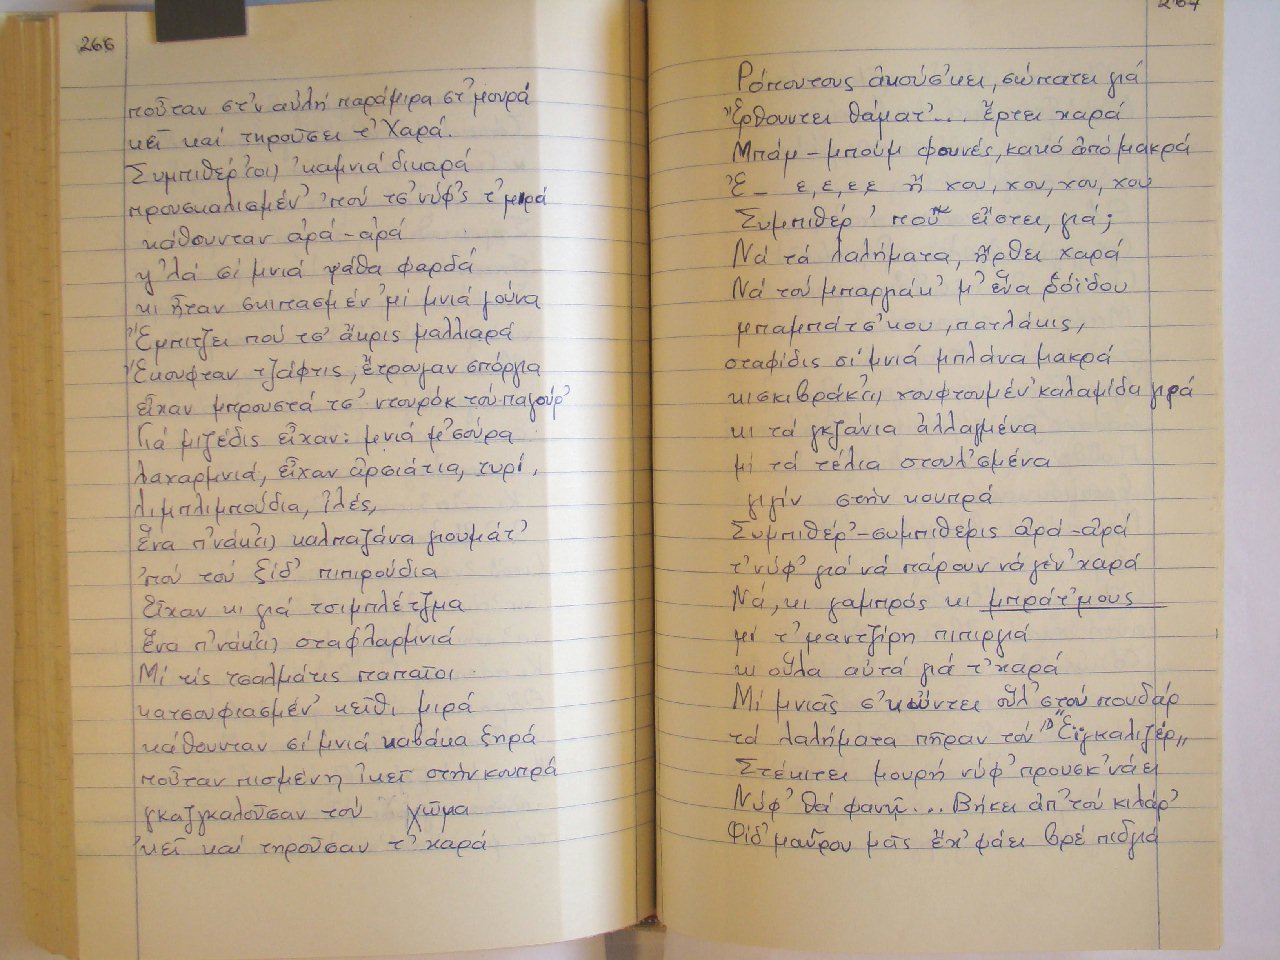 266
ποῦταν στ'ν αὐλή παράμιρα στ' μουρά
κεῖ καί τηροῦσει τ' Χαρά.
Συμπιθέρ'(οι) 'καμνιά δικαρά
προυσκαλισμέν' 'πού τσ' νύφ'ς τ' μιρά
κάθουνταν ἀρά-ἀρά
γ'λά σί μνιά ψάθα φαρδά
κι ἦταν σκιπασμέν' μί μνιά γούνα
Ἔμπιτζει πού τσ' ἄκρις μαλλιαρά
Ἔκουφταν τζάφτις, ἔτρωγαν σπόργια
εἶχαν μπρουστά τσ' ντουρόκ τού παγούρ'
Γιά μιζέδις εἶχαν: μνιά μ'σούρα
λαχαρμνιά, εἶχαν ἀρσιάτια, τυρί,
λιμπλιμπούδια, ἰλές,
Ἕνα π'νάκ'(ι) καλπαζάνα γιουμάτ'
'πού τού ξίδ' πιπιρούδια
Εἶχαν κι γιά τσιμπλέτζμα
Ἕνα π'νάκ'(ι) σταφλαρμνιά
Μί τίς τσαλμάτις παπαῖοι
κατσουφιασμέν' κεῖθι μιρά
κάθουνταν σί μνιά καβάκα ξηρά
ποῦταν πισμένη 'κεῖ στήν κουπρά
γκαζγκαλοῦσαν τού χῶμα
'κεῖ καί τηροῦσαν τ' χαρά
267
Ρόπουτους ἀκούσ'κει, σώπατει γιά
Ἔρθουντει θάματ'... ἔρτει χαρά
Μπάμ-μπούμ φουνές, κακό ἀπό μακρά
Ἐ- ε,ε,ε,ε ἤ χου, χου, χου, χου
Συμπιθέρ' ποῦ εἴστει, γιά;
Νά τά λαλήματα, ἦρθει χαρά
Νά τού μπαργιάκ' μ' ἕνα ῥόϊδου
μπαμπάτσ'κου, πατλάκις,
σταφίδις σί μνιά μπλάνα μακρά
κι σκιβράκ'(ι) χουφτουμέν' καλαμίδα γιρά
κι τά γκζάνια ἀλλαγμένα
μί τά τέλια στουλ'σμένα
γιγίν στήν κουπρά
Συμπιθέρ'-συμπιθέρις ἀρά-ἀρά
τ' νύφ' γιά νά πάρουν νά γέν' χαρά
Νά, κι γαμπρός κι μπράτ'μους
μί τ' μαντζίρη πιπιργιά
κι οὗλα αὐτά γιά τ' χαρά
Μί μνιᾶς σ'κώντει οὗλ' στού πουδάρ
τά λαλήματα πῆραν τόν "Εἰγκαλιζέρ"
Στέκιτει μουρή νύφ' προυσκ'νάει
Νύφ' θά φανῇ... Βήκει ἀπ' τού κιλάρ'
Φίδ' μαῦρου μᾶς ἔχ' φάει βρέ πιδγιά